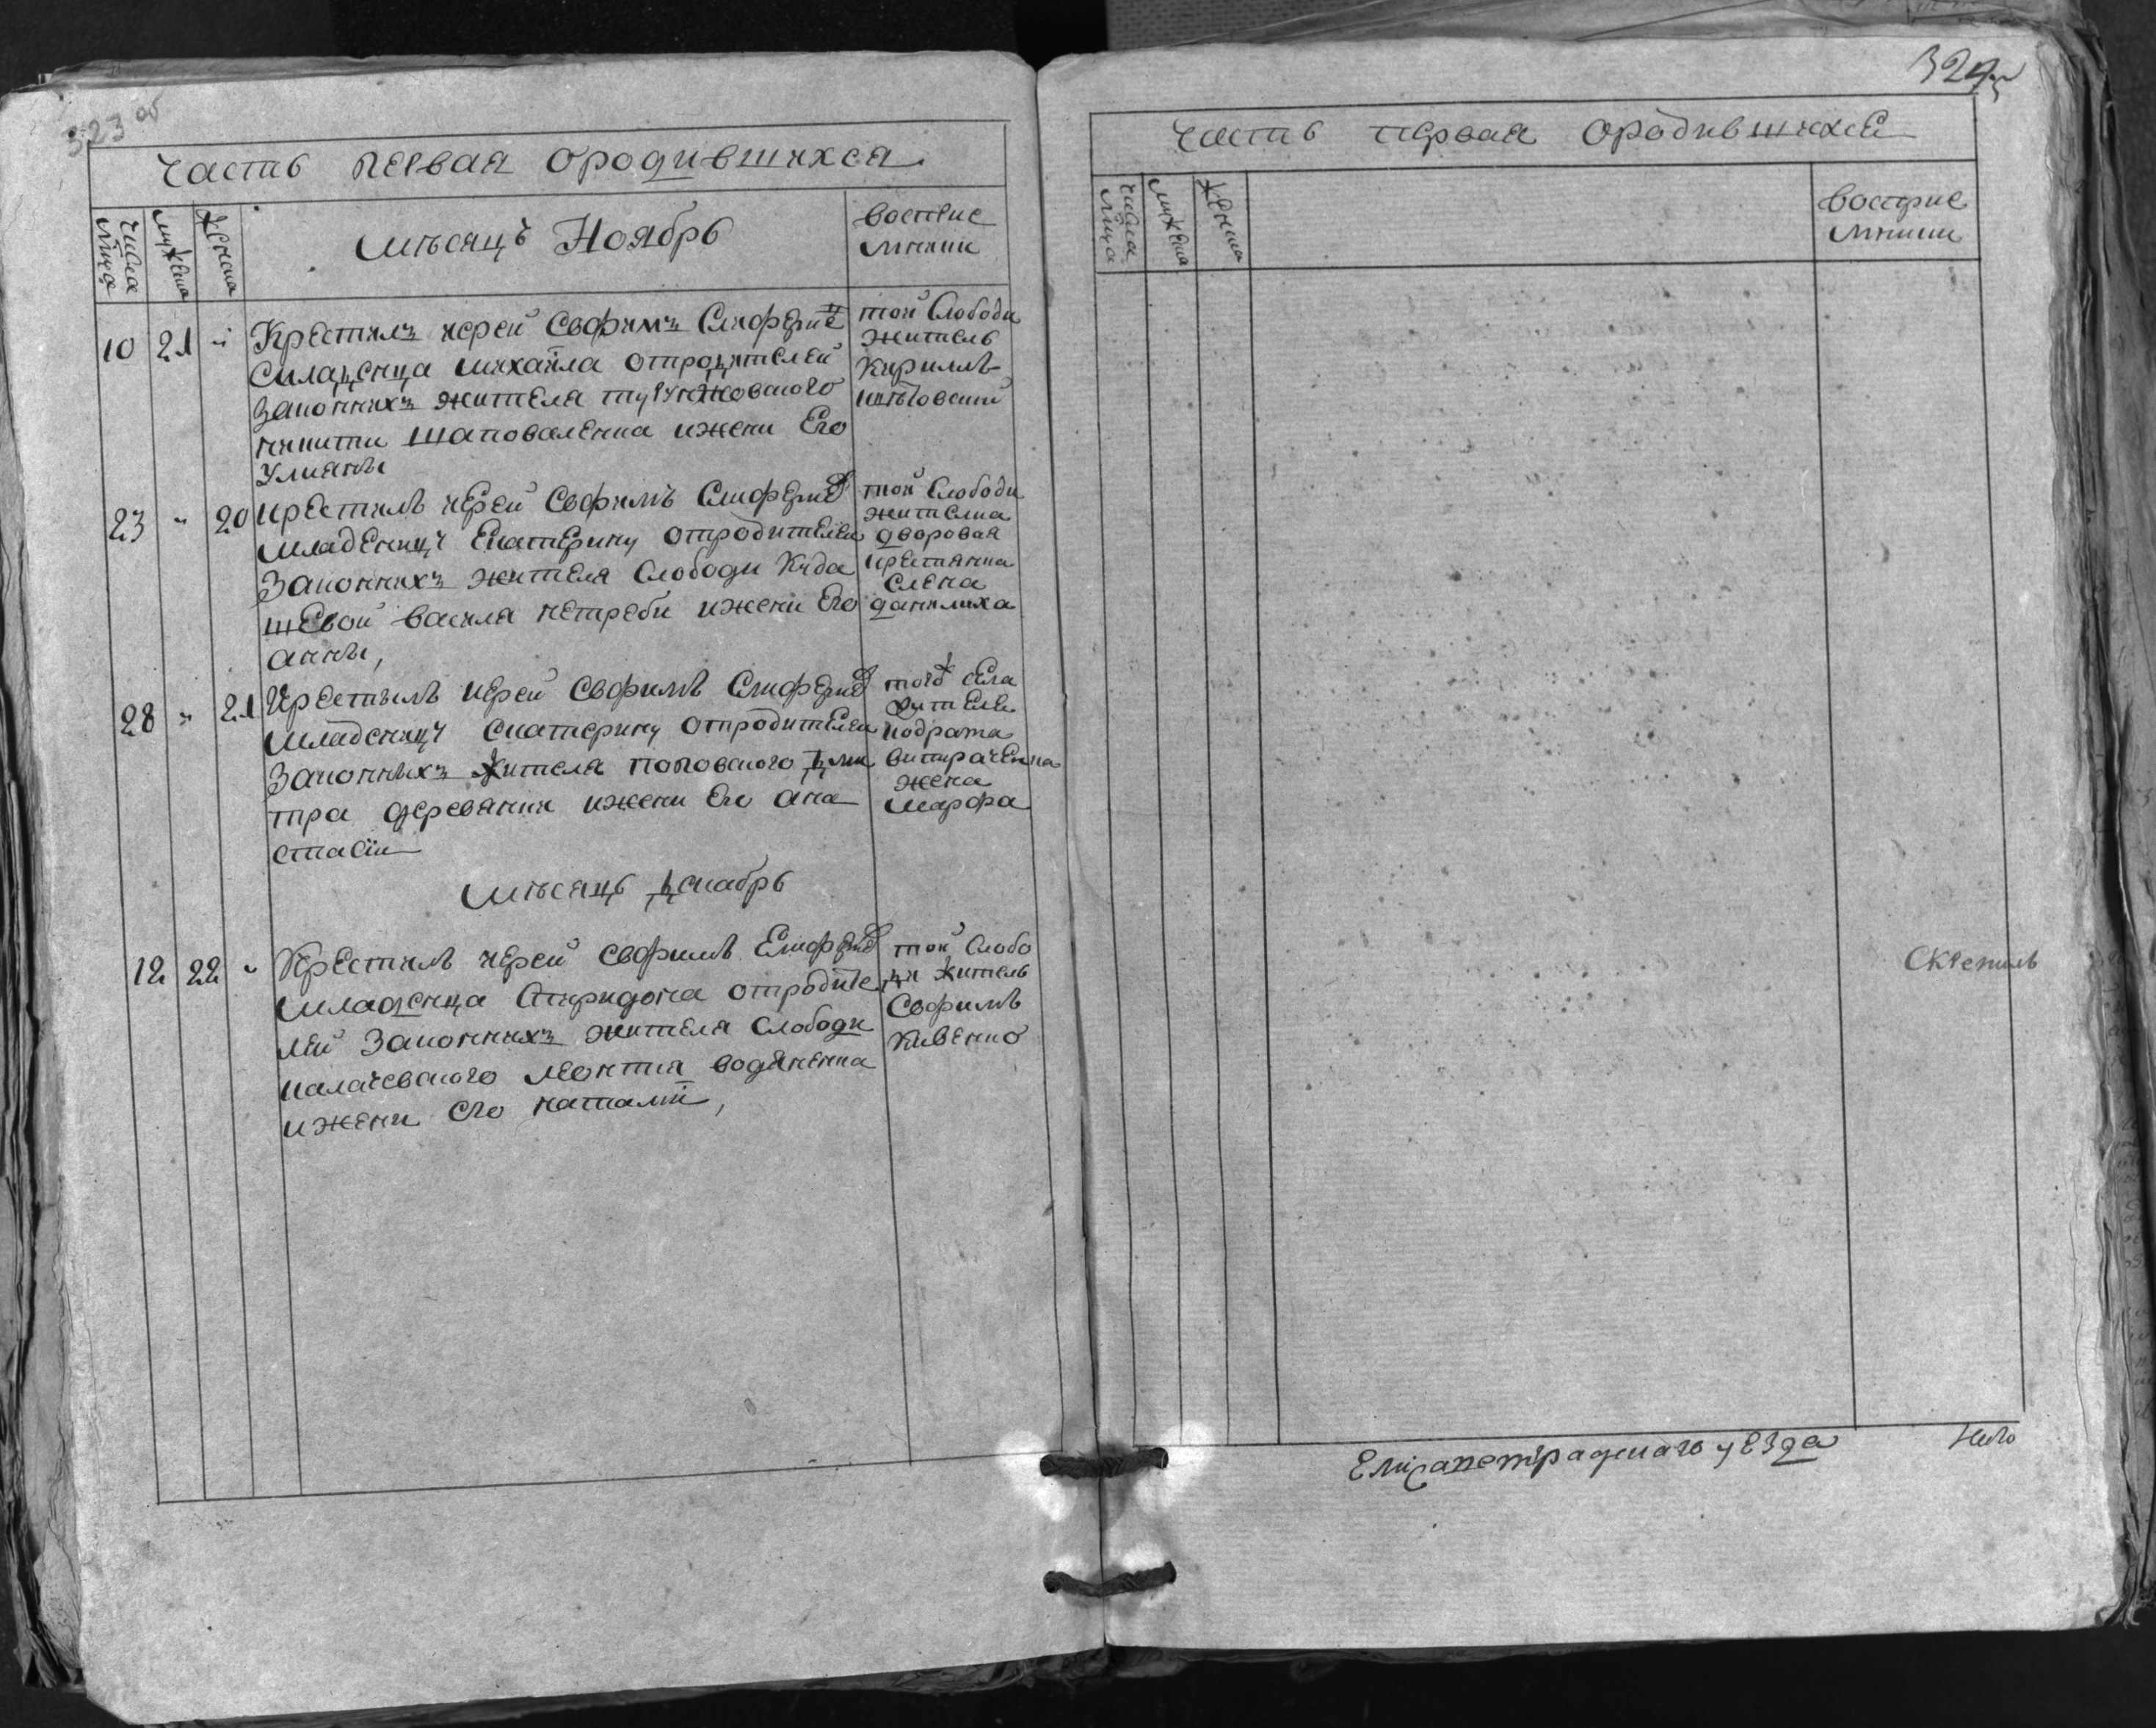 323 об
Часть первая ородившихся
числа мца
мужеска
женска
Мѣсяцъ Ноябрь
Восприе
мники
10 21 "
Крестилъ иерей Евфимъ
младенца Михаила отродителей
законнихъ жителя
никити Шаповаленка ижени Его
Улияны
той Слободи
житель
Кирилъ
23 " 20
Крестилъ иерей Евфимъ
младеницу Екатерину отродителей
законнихъ жителя Слободи Куда
шевой Василя Нетреби ижени Его
анны,
той Слободи
жителка
дворовая
крестянка
Елена
данилиха
28 " 21
Крестилъ иерей Евфимъ
младеницу Екатерину отродителей
законнихъ жителя поповского дми
тра деревянки ижени Его ана
стасіи
тогож села
жителя
кодрата
витраченка
жена
марфа
Мѣсяцъ декабрь
12 22 "
Крестилъ иерей Евфимъ
младенца Спиридона отродите
лей законнихъ жителя Слободи
калачевского леонтия водяненка
ижени его наталіи,
той Слобо
ди житель
Евфимъ
Кивенко
324
Часть первая ородившихся
числа мца
мужеска
женска
Восприе
мники
Скрепилъ
Елисаветградскаго уезда